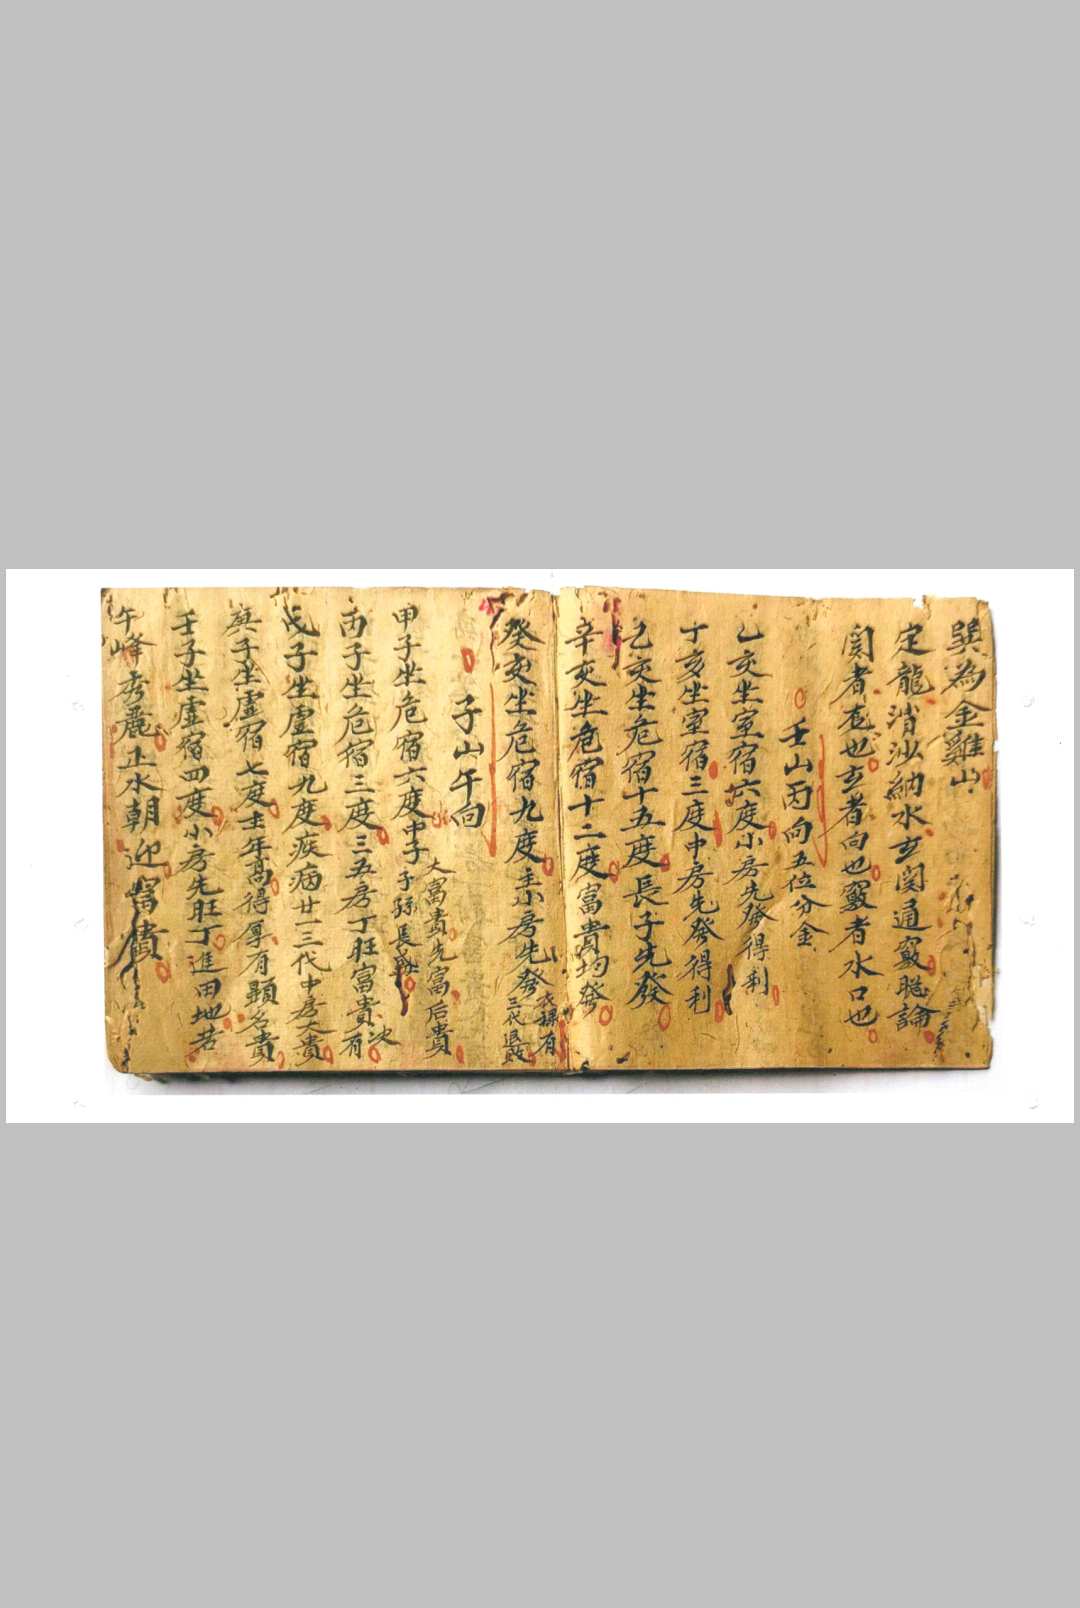 巽為金雞山
定龍消沙納水玄関通竅聪論
関者也玄者向也竅者水口也
壬山丙向五位分金
乙亥坐室宿六度小房先發得利
丁亥坐室宿三度中房先發得利
己亥坐危宿十五度長子先發
辛亥坐危宿十二度富貴均發
癸亥坐危宿九度主小房先發衣禄有
三代退敗
子山午向
大富貴先富后貴
甲子坐危宿六度中子子孫長
丙子坐危宿三度三五房丁旺富貴次有
戊子坐虛宿九度疾病廿一三代中房大貴
庚子坐虛宿七度主年高得厚有顕名貴
壬子坐虛宿四度小房先旺丁進田地若
午峰秀麗止水朝迎富貴